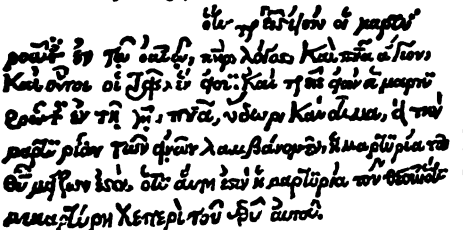 ὅτι τρεῖς εἰσὶν οἱ μαρτυ
ροῦντ ἐν τῶ οὐνῶ, πηρ, λόγος, καὶ πνα ἅγιον,
καὶ οὗτοι οἱ τρεῖς, ἕν εἰσι· καὶ τρεῖς εἰσὶν οἱ μαρτυ
ροῦντ ἐν τῆ γῆ, πνα, ὕδωρ καὶ αἷμα, εἰ τὴν
μαρτυρίαν τῶν ανων λαμβάνομεν, ἡ μαρτυρία τοῦ
θυ μείζων ἐστὶν, ὅτι αὕτη ἐστὶν ἡ μαρτυρία τοῦ θεοῦ ὅτι
μεμαρτύρηκε περὶ τοῦ υυ αὐτοῦ.